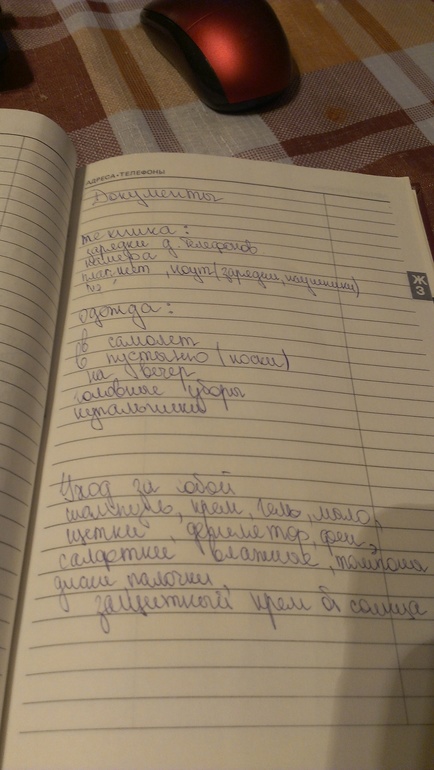 АДРЕСА • ТЕЛЕФОНЫ
Документы
техника:
зарядки д. телефонов
камера
планшет, ноут (зарядки, наушники)
одежда:
в самолет
в пустыню (носки)
на вечер
головные уборы
купальники
Ж
З
Уход за собой
шампунь, крем, гель, мыло,
щетки, фен
салфетки влажные, тампоны
палочки,
защитный крем от солнца